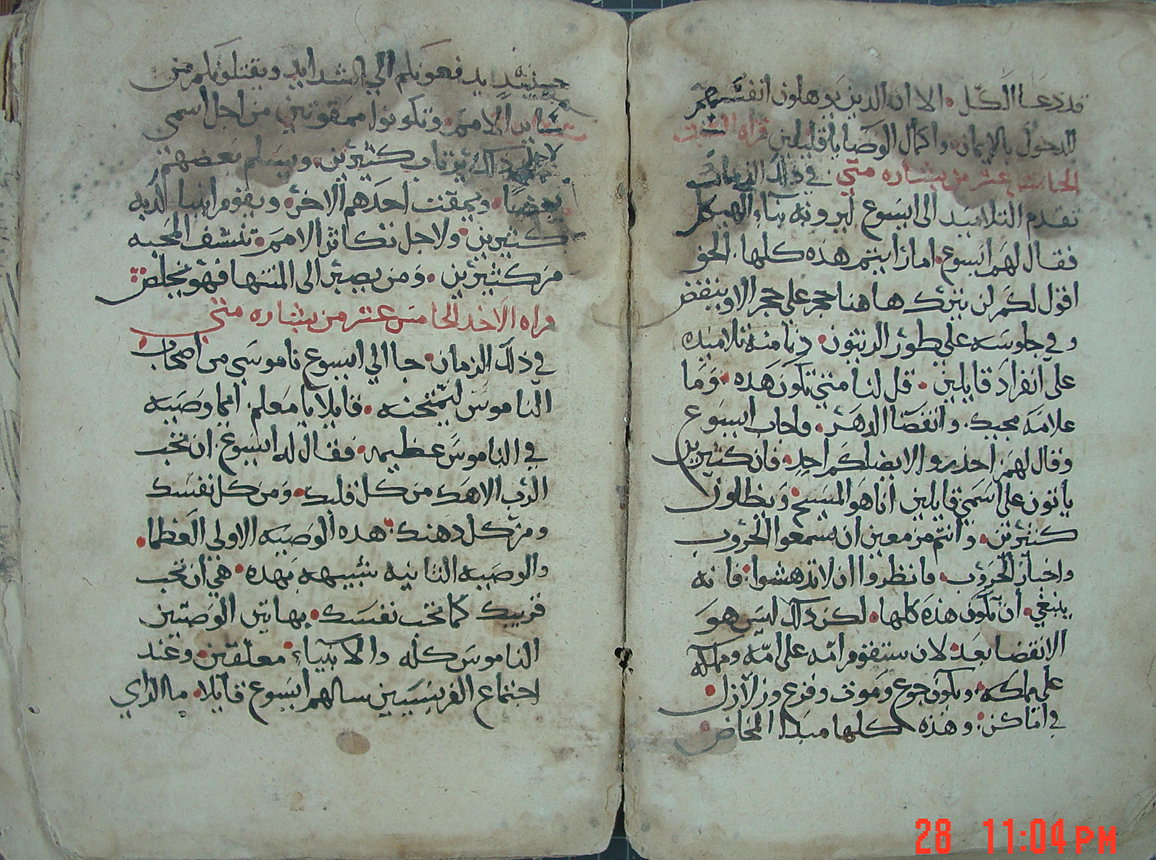 قد دعا الكل. الا ان الذين يوهلون انفسهم
للدخول بالإيمان. واكمال الوصايا قليلين قراه السبت
الخامس عشر من بشاره متى. في ذلك الزمان
تقدم التلاميذ الى ايسوع ليرونه بناء الهيكل
فقال لهم ايسوع. اما رايتم هذه كلها. الحق
اقول لكم لن يترك هاهنا حجر على حجر الا وينقض
وفي جلوسه على طور الزيتون. دنا منه تلاميذه
على انفراد قايلين. قل لنا متى تكون هذه. وما
علامة مجيك. وانقضا الدهر. واجاب ايسوع
وقال لهم. احذروا لا يضلكم احد. فان كثيرين
ياتون على اسمي قايلين انا هو المسيح. ويظلون
كثيرين. وانتم مزمعين ان تسمعوا الحروب
واخبار الحروب. فانظروا ان لا تدهشوا. فانه
ينبغي. أن تكون هذه كلها. لكن ذلك ليس هو
الانقضا بعد. لان ستقوم امه على امه ومملكه
على مملكه. ويكون جوع وموت وفزع وزلازل.
في اماكن. وهذه كلها مبدا المخاض
حينيذ يدفعونكم الى الشدايد. ويقتلونكم من
ساير الامم. وتكونوا ممقوتين من اجل اسمي
ذلك كثيرين. ويسلم بعضهم
بعضا. ويمقت احدهم الاخر. ويقوم انبيا كذبه
كثيرين. ولاجل تكاثر الامم. تنشف المحبه
من كثيرين. ومن يصبر الى المنتها فهو يخلص
قراه الاحد الخامس عشر من بشاره متى
في ذلك الزمان. جا الي ايسوع ناموسي من اصحاب
الناموس ليمتحنه. قايلا يا معلم. ايما وصيه
في الناموس عظيمه. فقال له ايسوع. ان تحب
الرب الاهك من كل قلبك. ومن كل نفسك
ومن كل ذهنك. هذه الوصيه الاولى العظما.
والوصيه الثانيه شبيهه بهذه. هي ان تحب
قريبك كما تحب نفسك. بهاتين الوصيتين
الناموس كله والانبياء. معلقين. وعند
اجتماع الفريسيين سالهم ايسوع قايلا. ما الذاي
28 11:04 PM